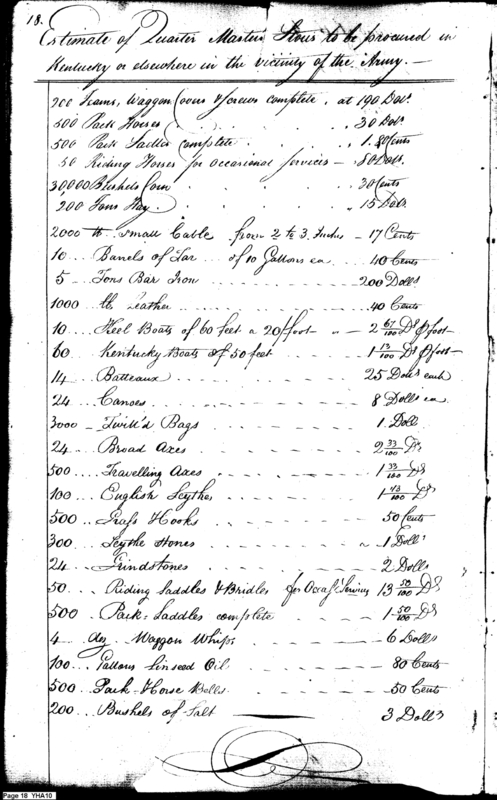 18.
Estimate of Quarter Master Stores to be procured in
Kentucky or elsewhere in the vicinity of the Army. —
200 Teams, Waggon Covers & Screws complete, at 190 Dols.
500 Pack Horses . . . " 30 Dols.
500 Pack Sadles Complete . . " 1.80 Cents
50 Riding Horses for occasional services — 80 Dols.
30000 Bushels Corn . . . . " 30 Cents
200 Tons Hay . . . . . " 15 Dols
2000 lb. small Cable from 2 to 3 Inches — 17 Cents
10 .. Barrels of Tar ... of 10 Gallons ea . . 40 Cents
5 .. Tons Bar Iron . . . . . 200 Dolls
1000 lb Leather . . . . 40 Cents
10 .. Keel Boats of 60 feet a 20/foot " — 2 67/100 Ds P foot
60 .. Kentucky Boats of 50 feet . . . 1 13/100 Ds P foot
14 .. Batteaux . . . . . 25 Dolls each
24 .. Canoes . . . . . 8 Dolls ea
3000 — Twill'd Bags . . . . 1 Doll
24 .. Broad Axes . . . . 2 33/100 Ds
500 .. Travelling Axes . . . . 1 33/100 Ds
100 .. English Scythes . . . . 1 43/100 Ds
500 .. Grass Hooks . . . . 50 Cents
300 .. Scythe Stones . . . . " 1 Dolls
24 .. Grindstones . . . . 2 Dolls
50 .. Riding Saddles & Bridles for Occasl. Services 13 50/100 Ds
500 .. Pack-Saddles complete . . . 1 50/100 Ds
4 .. dz Waggon Whips . . . . 6 Dolls
100 .. Gallons Linseed Oil . . . . 80 Cents
500 .. Pack-Horse Bells . . . . 50 Cents
200 .. Bushels of Salt . . . . 3 Dolls
Page 18 YHA10